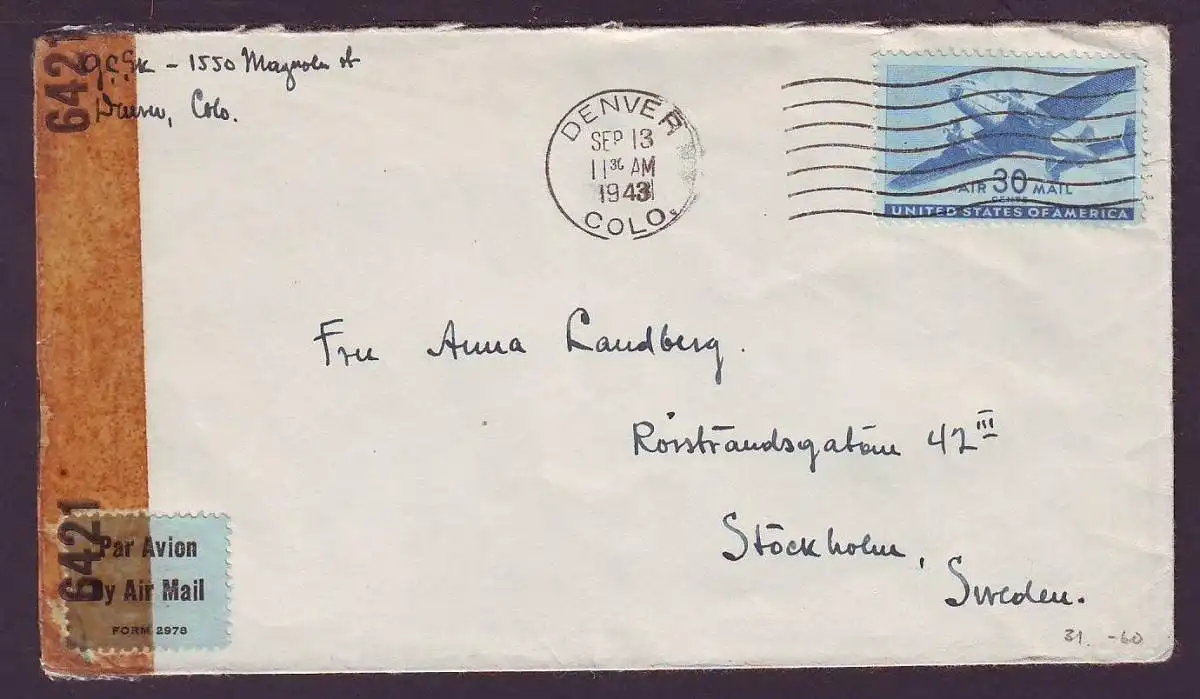 642
1550 Magnolia St
Denver, Colo.
DENVER
SEP 13
11 30 AM
1943
COLO.
AIR 30 MAIL
CENTS
UNITED STATES OF AMERICA
Fru Anna Landberg.
Rörstrandsgatan 42 III
Stockholm,
Sweden.
6421
Par Avion
By Air Mail
FORM 2978
31. -60